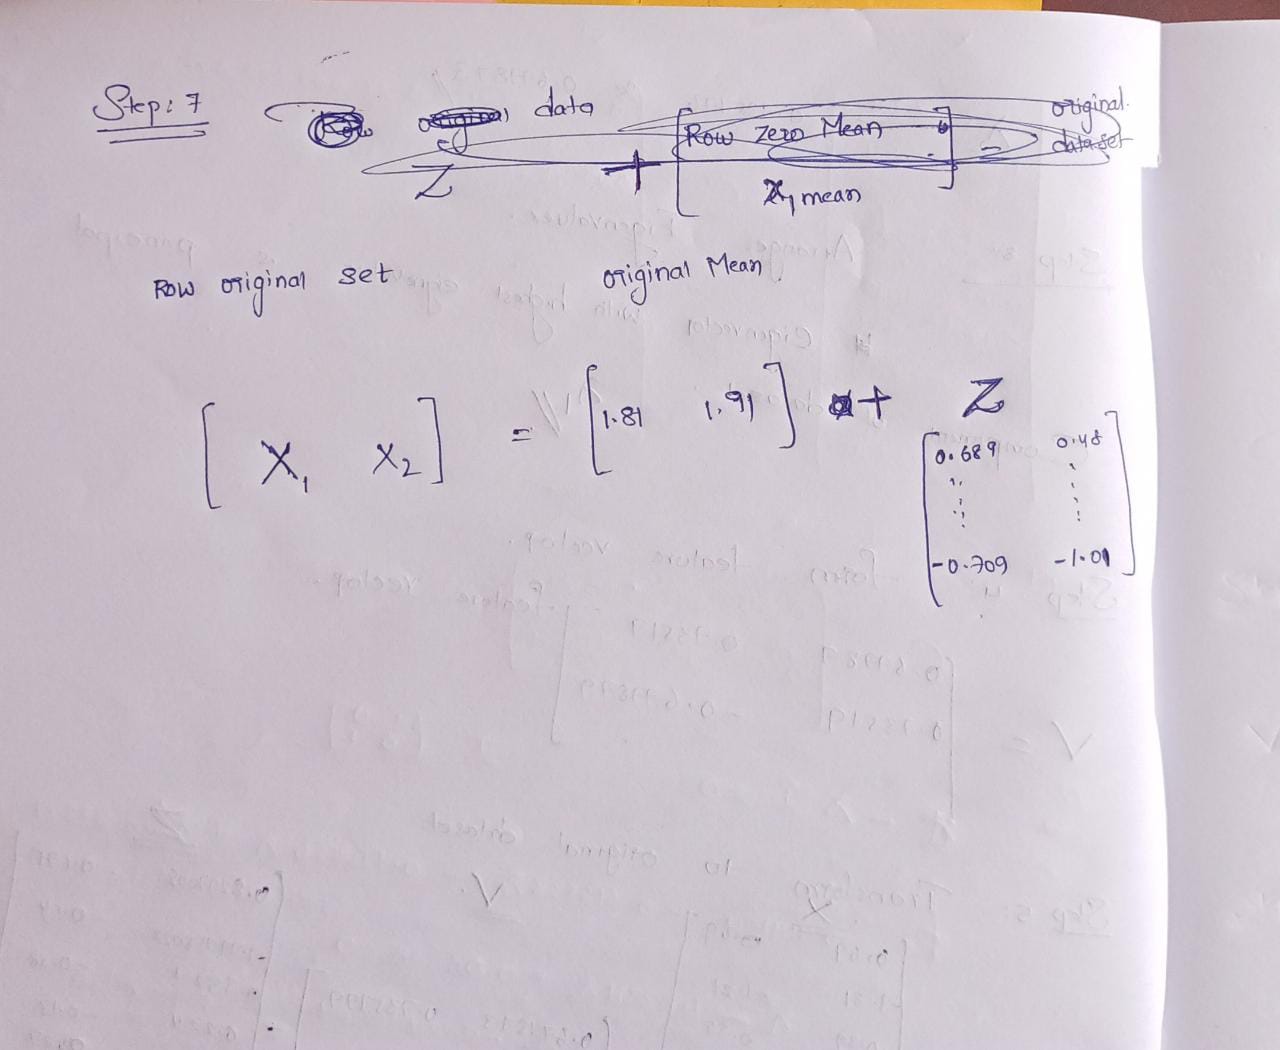 Step: 7 data original
Row Zero Mean data set
Z + X1 mean
Row original set original Mean
[ X1 X2 ] = [ 1.81 1.91 ] + Z
[ 0.689 0.48
-0.709 -1.01 ]